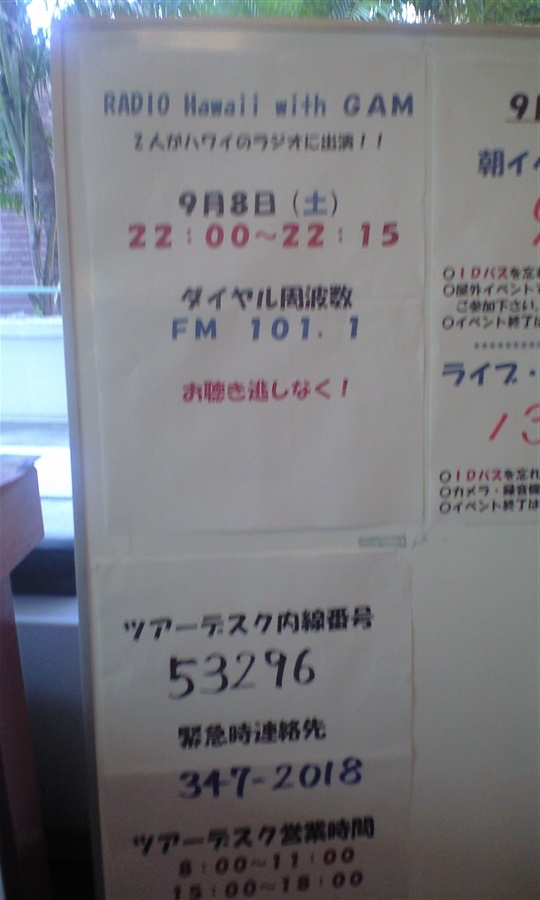 RADIO Hawaii with GAM
2人がハワイのラジオに出演!!
9月8日(土)
22:00~22:15
ダイヤル周波数
FM 101.1
お聴き逃しなく!
ツアーデスク内線番号
53296
緊急時連絡先
347-2018
ツアーデスク営業時間
8:00~11:00
15:00~18:00
朝イベ
○IDパスを忘れ
○屋外イベント
ご参加下さい。
○イベント終了は
**********
ライブ・
13
○IDパスを忘れ
○カメラ・録音機
○イベント終了は